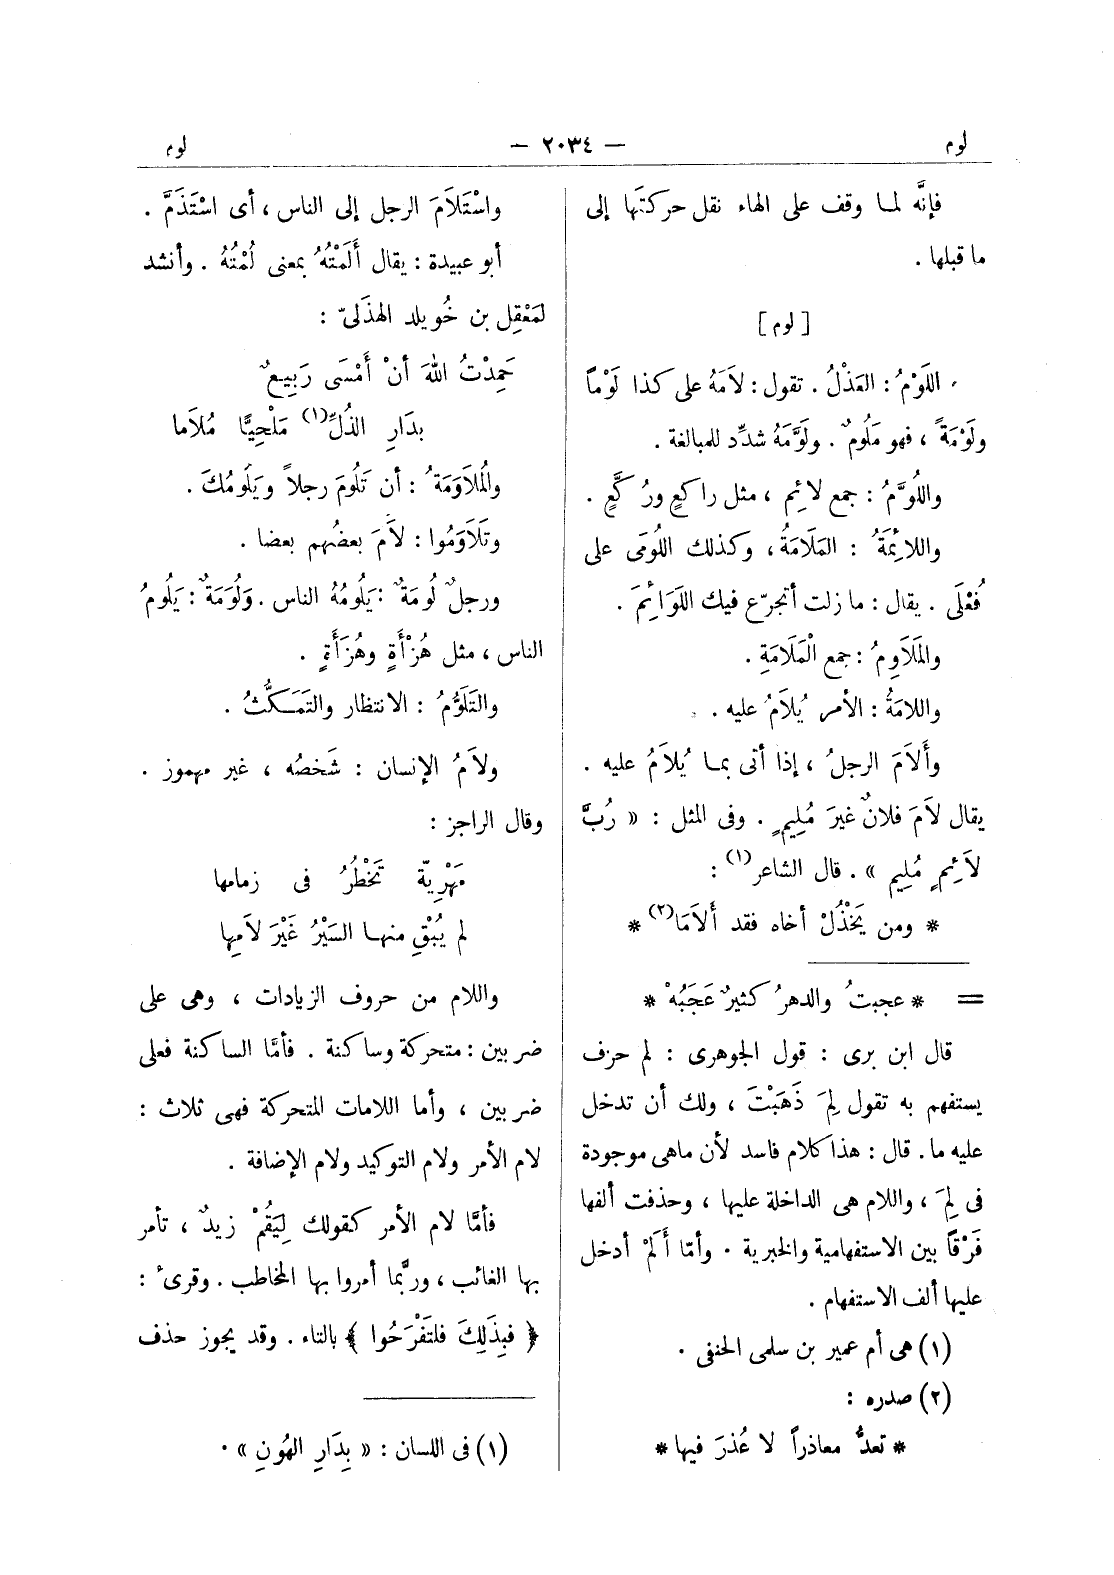 لوم — ٢٠٣٤ — لوم
فإنَّه لما وقف على الهاء نقل حركتَها إلى
ما قبلها .
[ لوم ]
اللَوْمُ : العَذْلُ . تقول : لَامَهُ على كذا لَوْماً
ولَوْمَةً ، فهو مَلُومٌ . ولَوَّمَهُ شدِّد للمبالغة .
واللُوَّمُ : جمع لائِم ، مثل راكعٍ ورُكَّعٍ .
واللائِمَةُ : المَلَامَةُ ، وكذلك اللُومَى على
فُعْلَى . يقال : ما زلت أتجرّع فيك اللَوَائِمَ .
والمَلَاوِمُ : جمع الْمَلَامَةِ .
واللامَةُ : الأمر يُلَامُ عليه .
وأَلَامَ الرجلُ ، إذا أتى بما يُلَامُ عليه .
يقال لَامَ فلانٌ غيرَ مُلِيمٍ . وفى المثل : « رُبَّ
لَائِمٍ مُلِيم » . قال الشاعر(١) :
* ومن يَخْذُلْ أخاه فقد أَلَامَا(٢) *
= * عجبتُ والدهرُ كثيرٌ عَجَبُهْ *
قال ابن برى : قول الجوهرى : لم حرف
يستفهم به تقول لِمَ ذَهَبْتَ ، ولك أن تدخل
عليه ما . قال : هذا كلام فاسد لأن ماهى موجودة
فى لِمَ ، واللام هى الداخلة عليها ، وحذفت ألفها
فَرْقاً بين الاستفهامية والخبرية . وأمّا أَلَمْ أدخل
عليها ألف الاستفهام .
(١) هى أم عمير بن سلمى الحنفى .
(٢) صدره :
* تعدُّ معاذراً لا عُذرَ فيها *
واسْتَلَامَ الرجل إلى الناس ، أى اسْتَذَمَّ .
أبو عبيدة : يقال أَلَمْتُهُ بمعنى لُمْتُهُ . وأنشد
لمَعْقِل بن خُويلد الهذَلىّ :
حَمِدْتُ اللهَ أنْ أَمْسَى رَبِيعٌ
بدَارِ الذُلِّ(١) مَلْحِيًّا مُلَاما
والمُلَاوَمَةُ : أن تَلُومَ رجلاً ويَلُومُكَ .
وتَلَاوَمُوا : لَامَ بعضُهم بعضا .
ورجلٌ لُومَةٌ : يَلُومُهُ الناس . وَلُوَمَةٌ : يَلُومُ
الناس ، مثل هُزْأَةٍ وهُزَأَةٍ .
والتَلَوُّمُ : الانتظار والتَمَكُّثُ .
ولَامُ الإنسان : شَخصُه ، غير مهموز .
وقال الراجز :
مَهْرِيّة تَخْطُرُ فى زمامها
لم يُبْقِ منها السَيْرُ غَيْرَ لَامِها
واللام من حروف الزيادات ، وهى على
ضربين : متحركة وساكنة . فأمَّا الساكنة فعلى
ضربين ، وأما اللامات المتحركة فهى ثلاث :
لام الأمر ولام التوكيد ولام الإضافة .
فأمَّا لام الأمر كقولك لِيَقُمْ زيدٌ ، تأمر
بها الغائب ، وربَّما أمروا بها المخاطب . وقرئ :
﴿ فبِذَلِكَ فلتَفْرَحُوا ﴾ بالتاء . وقد يجوز حذف
(١) فى اللسان : « بِدَارِ الهُونِ » .